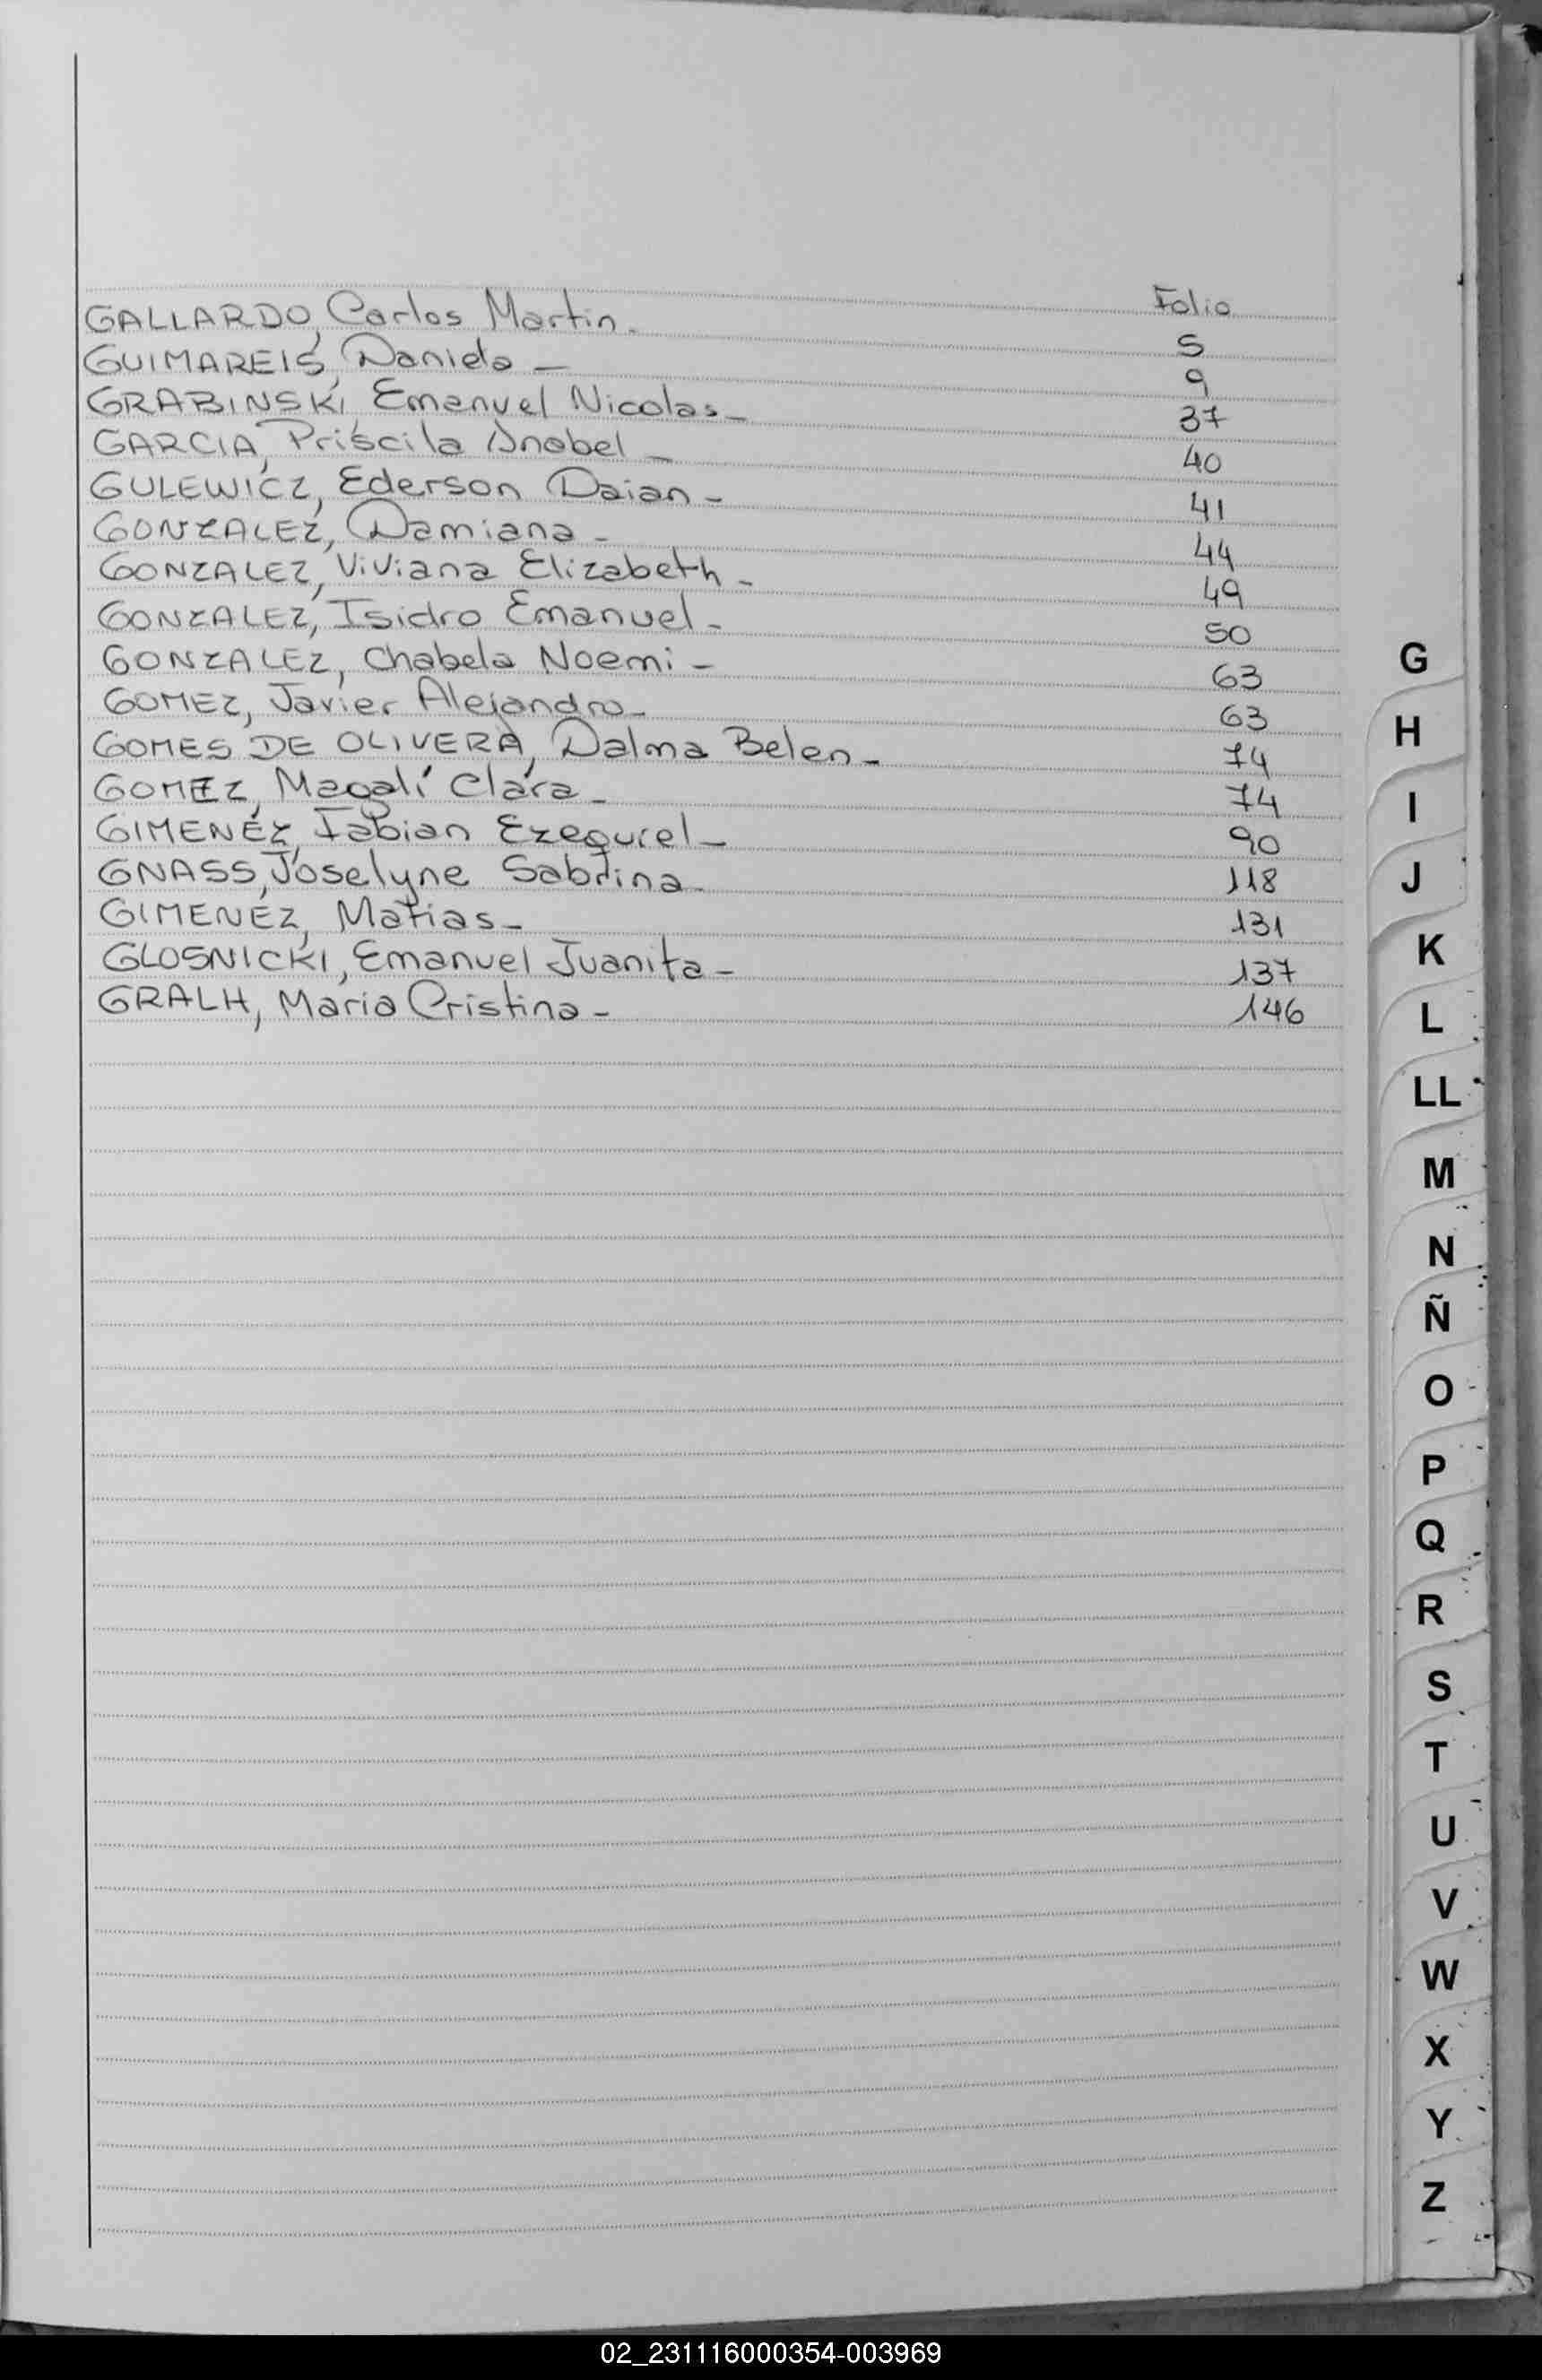 Folio
GALLARDO, Carlos Martin. 5
GUIMAREIS, Daniela - 9
GRABINSKI, Emanuel Nicolas - 37
GARCIA, Priscila Anabel - 40
GULEWICZ, Ederson Daian - 41
GONZALEZ, Damiana - 44
GONZALEZ, Viviana Elizabeth - 49
GONZALEZ, Isidro Emanuel - 50
GONZALEZ, Chabela Noemi - 63
GOMEZ, Javier Alejandro - 63
GOMES DE OLIVERA, Dalma Belen - 74
GOMEZ, Magalí Clara - 74
GIMENEZ, Fabian Ezequiel - 90
GNASS, Joselyne Sabrina - 118
GIMENEZ, Matias - 131
GLOSNICKI, Emanuel Juanita - 137
GRALH, Maria Cristina - 146
G
H
I
J
K
L
LL
M
N
Ñ
O
P
Q
R
S
T
U
V
W
X
Y
Z
02_231116000354-003969